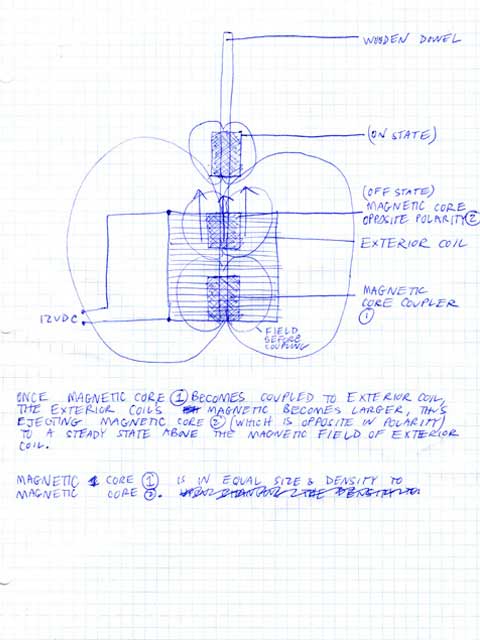 WOODEN DOWEL
(ON STATE)
(OFF STATE)
MAGNETIC CORE
OPPOSITE POLARITY ②
EXTERIOR COIL
MAGNETIC
CORE COUPLER
①
12VDC
FIELD
BEFORE
COUPLING
ONCE MAGNETIC CORE ① BECOMES COUPLED TO EXTERIOR COIL,
THE EXTERIOR COILS MAGNETIC BECOMES LARGER, THUS
EJECTING MAGNETIC CORE ② (WHICH IS OPPOSITE IN POLARITY)
TO A STEADY STATE ABOVE THE MAGNETIC FIELD OF EXTERIOR
COIL.
MAGNETIC CORE ① IS IN EQUAL SIZE & DENSITY TO
MAGNETIC CORE ②.